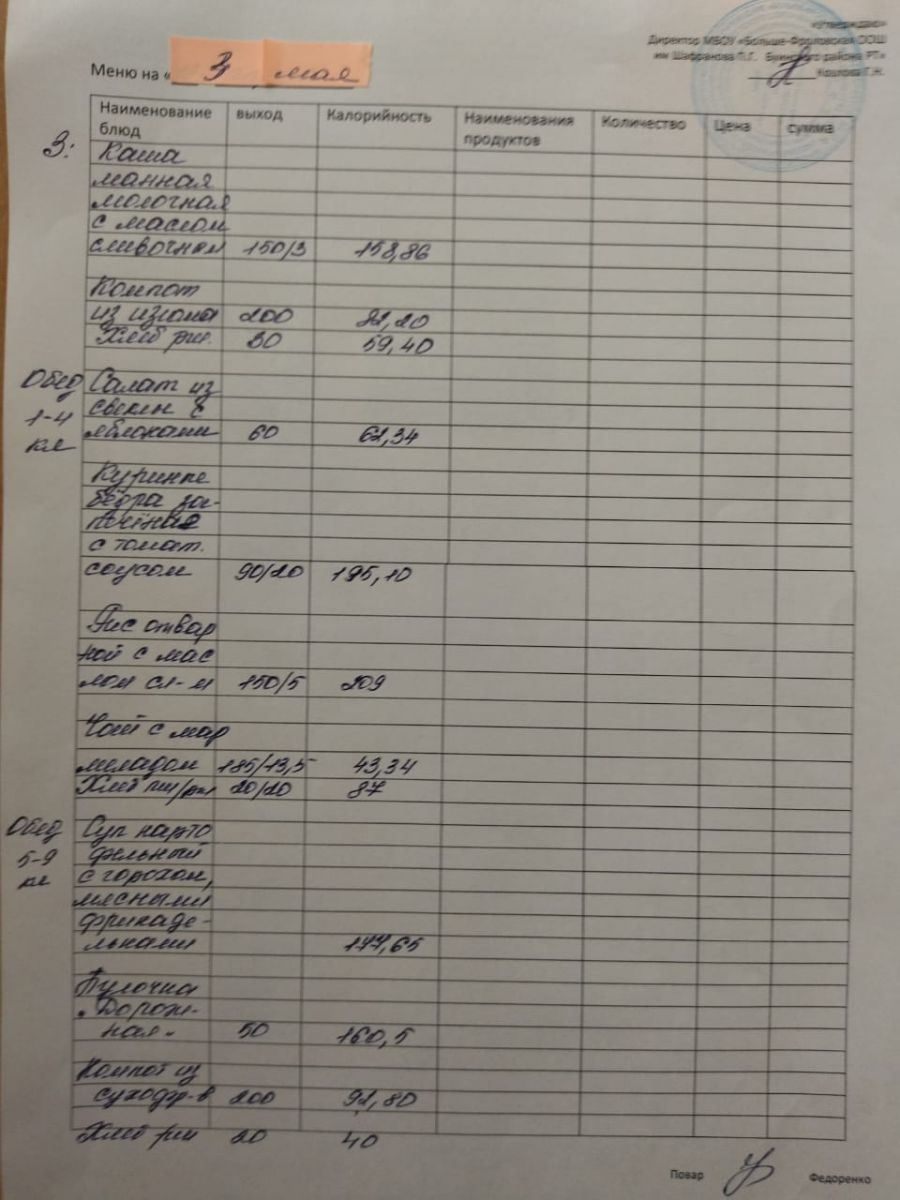 «Утверждаю»
Директор МБОУ «Больше-Фроловская ООШ
им Шафранова П.Г. Буинского района РТ»
Козлова Г.Н.
Меню на « 3 мая
Наименование блюд выход Калорийность Наименования продуктов Количество Цена сумма
З: Каша
манная
молочная
с маслом
сливочным 150/3 158,86
Компот
из изюма 200
Хлеб рж. 30 59,40
Обед Салат из
1-4 свеклы с
кл яблоками 60 62,34
Куриные
бёдра за-
печёная
с томат.
соусом 90/20 195,10
Рис отвар
ной с мас
лом сл-м 150/5 209
Чай с мар
меладом 185/13,5 43,34
Хлеб пш/рж 20/20 87
Обед Суп карто
5-9 фельный
кл с горохом,
мясными
фрикаде-
льками 177,65
Булочка
"Дорож-
ная" 50 160,5
Компот из
сухофр-в 200 92,80
Хлеб рж 20 40
Повар Федоренко